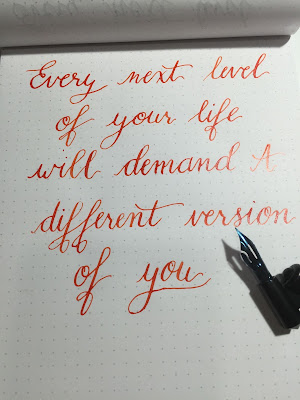 Every next level
of your life
will demand A
different version
of you